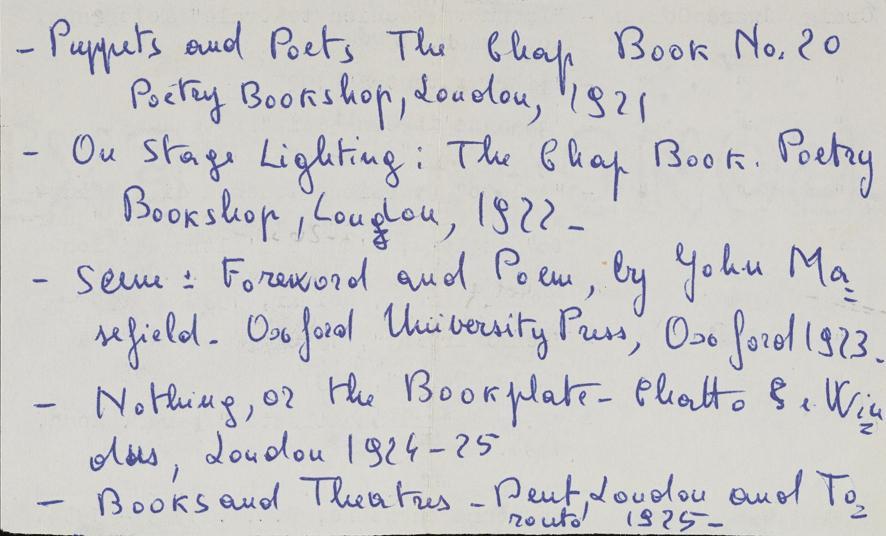 - Puppets and Poets The Chap Book No. 20
Poetry Bookshop, London, 1921
- On Stage Lighting: The Chap Book. Poetry
Bookshop, London, 1922 -
- Scene: Foreword and Poem, by John Ma=
sefield. Oxford University Press, Oxford 1923.
- Nothing, or the Bookplate - Chatto & Win=
dus, London 1924-25
- Books and Theatres - Dent, London and To=
ronto 1925 -